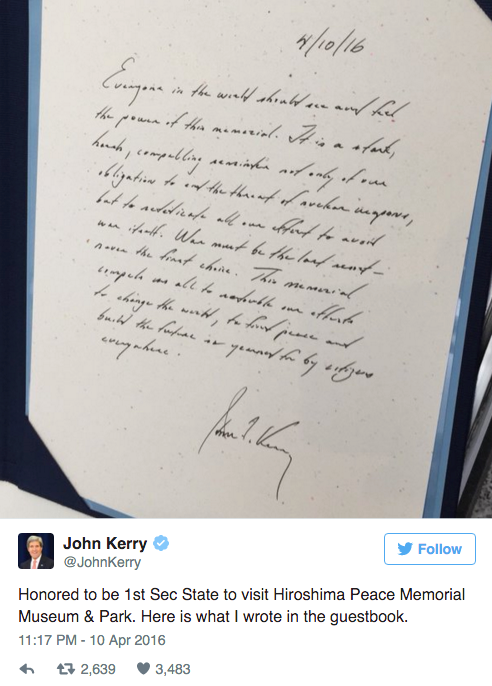 4/10/16
Everyone in the world should see and feel
the power of this memorial. It is a stark,
harsh, compelling reminder not only of our
obligation to end the threat of nuclear weapons,
but to rededicate all our effort to avoid
war itself. War must be the last resort –
never the first choice. This memorial
compels us all to redouble our efforts
to change the world, to find peace and
build the future so yearned for by citizens
everywhere.
John F. Kerry
John Kerry
@JohnKerry
Follow
Honored to be 1st Sec State to visit Hiroshima Peace Memorial
Museum & Park. Here is what I wrote in the guestbook.
11:17 PM - 10 Apr 2016
2,639
3,483